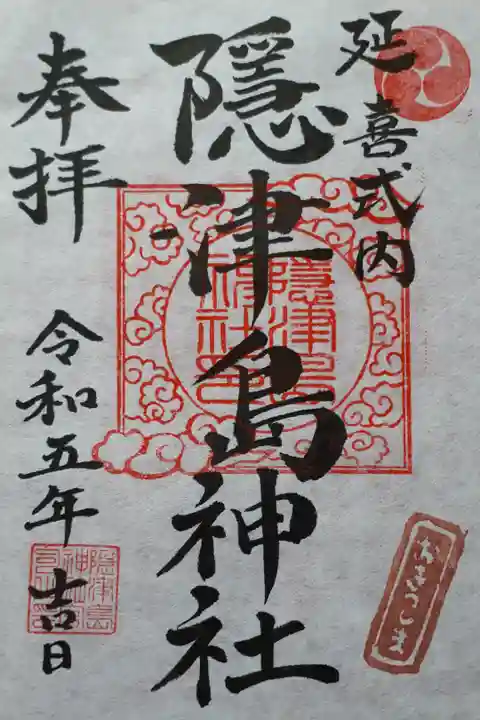 延喜式内
隠津島神社
奉拝
令和五年
吉日
隠津島
神社印
おきつしま